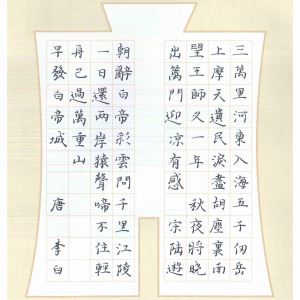 三萬里河東入海五千仞岳
上摩天遺民淚盡胡塵裏南
望王師又一年 秋夜將曉
出籬門迎凉有感 宋陸遊
朝辭白帝彩雲間千里江陵
一日還兩岸猿聲啼不住輕
舟已過萬重山
早發白帝城 唐 李白